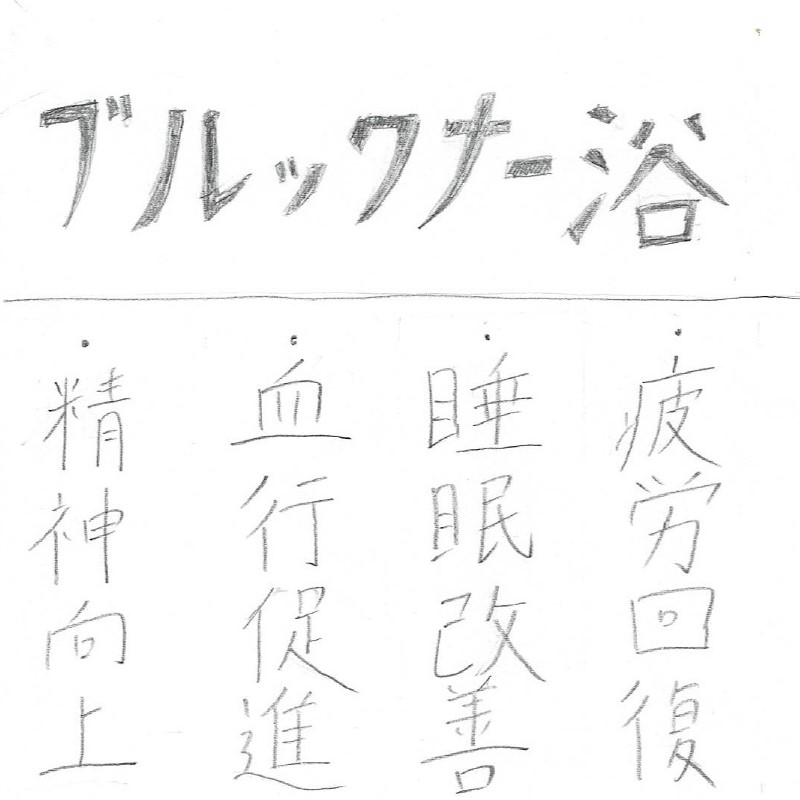 ブルックナー浴
・疲労回復
・睡眠改善
・血行促進
・精神向上